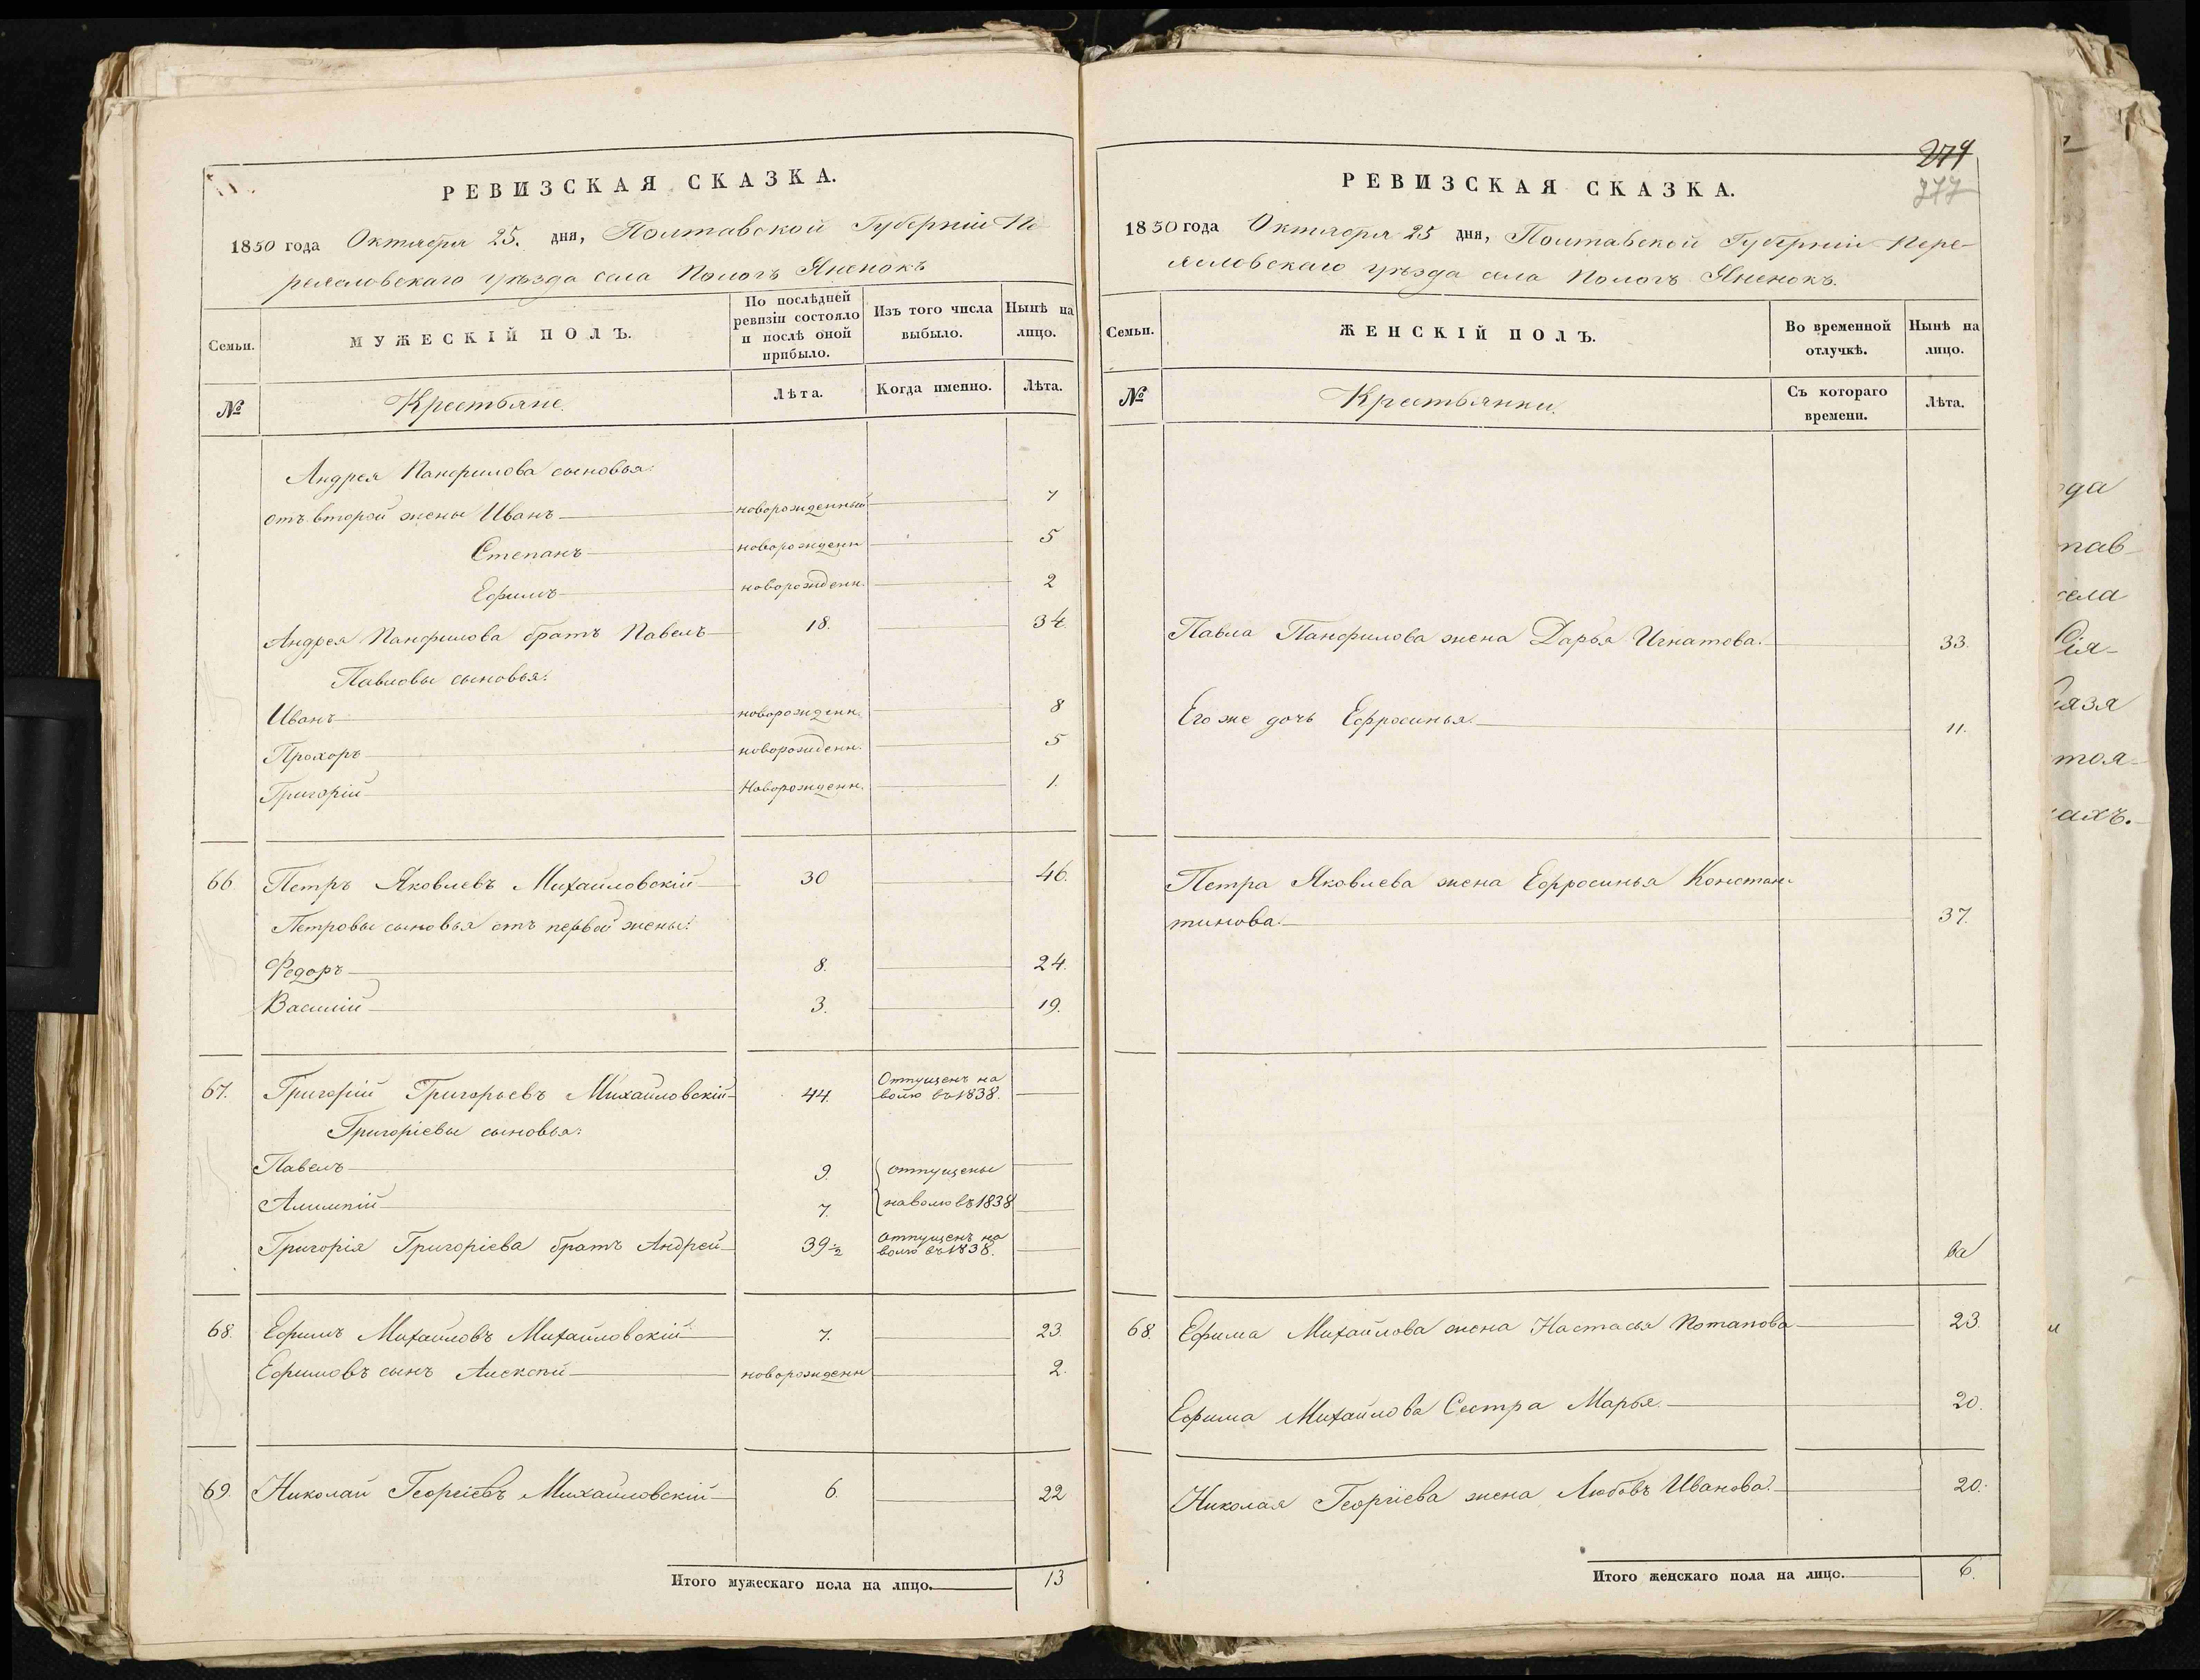 РЕВИЗСКАЯ СКАЗКА.
1850 года Октября 25. дня, Полтавской Губерніи Пе-
реясловскаго уѣзда села Пологъ Яненокъ
Семьи.
МУЖЕСКІЙ ПОЛЪ.
По послѣдней ревизіи состояло и послѣ оной прибыло.
Изъ того числа выбыло.
Нынѣ на лицо.
№
Крестьяне.
Лѣта.
Когда именно.
Лѣта.
Андрея Панфилова сыновья:
отъ второй жены Иванъ новорожденный 7
Степанъ новорожденн 5
Ефимъ новорожденн. 2
Андрея Панфилова братъ Павелъ 18 34
Павловы сыновья:
Иванъ новорожденн. 8
Прохоръ новорожденн. 5
Григорій Новорожденн. 1.
66. Петръ Яковлевъ Михайловскій 30 46.
Петровы сыновья отъ первой жены:
Федоръ 8. 24.
Василій 3. 19.
67. Григорій Григорьевъ Михайловскій 44. Отпущенъ на
волю въ 1838.
Григоріевы сыновья:
Павелъ 9. отпущены
Алимпій 7. на волю въ 1838
Григорія Григоріева братъ Андрей 39½ отпущенъ на
волю въ 1838.
68. Ефимъ Михайловъ Михайловскій 7. 23.
Ефимовъ сынъ Алексѣй новорожденн 2.
69. Николай Георгіевъ Михайловскій 6. 22
Итого мужескаго пола на лицо. 13
279
277
РЕВИЗСКАЯ СКАЗКА.
1850 года Октября 25 дня, Полтавской Губерніи Пере-
ясловскаго уѣзда села Пологъ Яненокъ.
Семьи.
ЖЕНСКІЙ ПОЛЪ.
Во временной отлучкѣ.
Нынѣ на лицо.
№
Крестьянки.
Съ котораго времени.
Лѣта.
Павла Панфилова жена Дарья Игнатова. 33.
Его же дочь Ефросинья. 11.
Петра Яковлева жена Ефросинья Констан-
тинова. 37.
ва
68. Ефима Михайлова жена Настасья Потапова 23
Ефима Михайлова Сестра Марья. 20.
Николая Георгіева жена Любовь Иванова. 20.
Итого женскаго пола на лицо. 6.